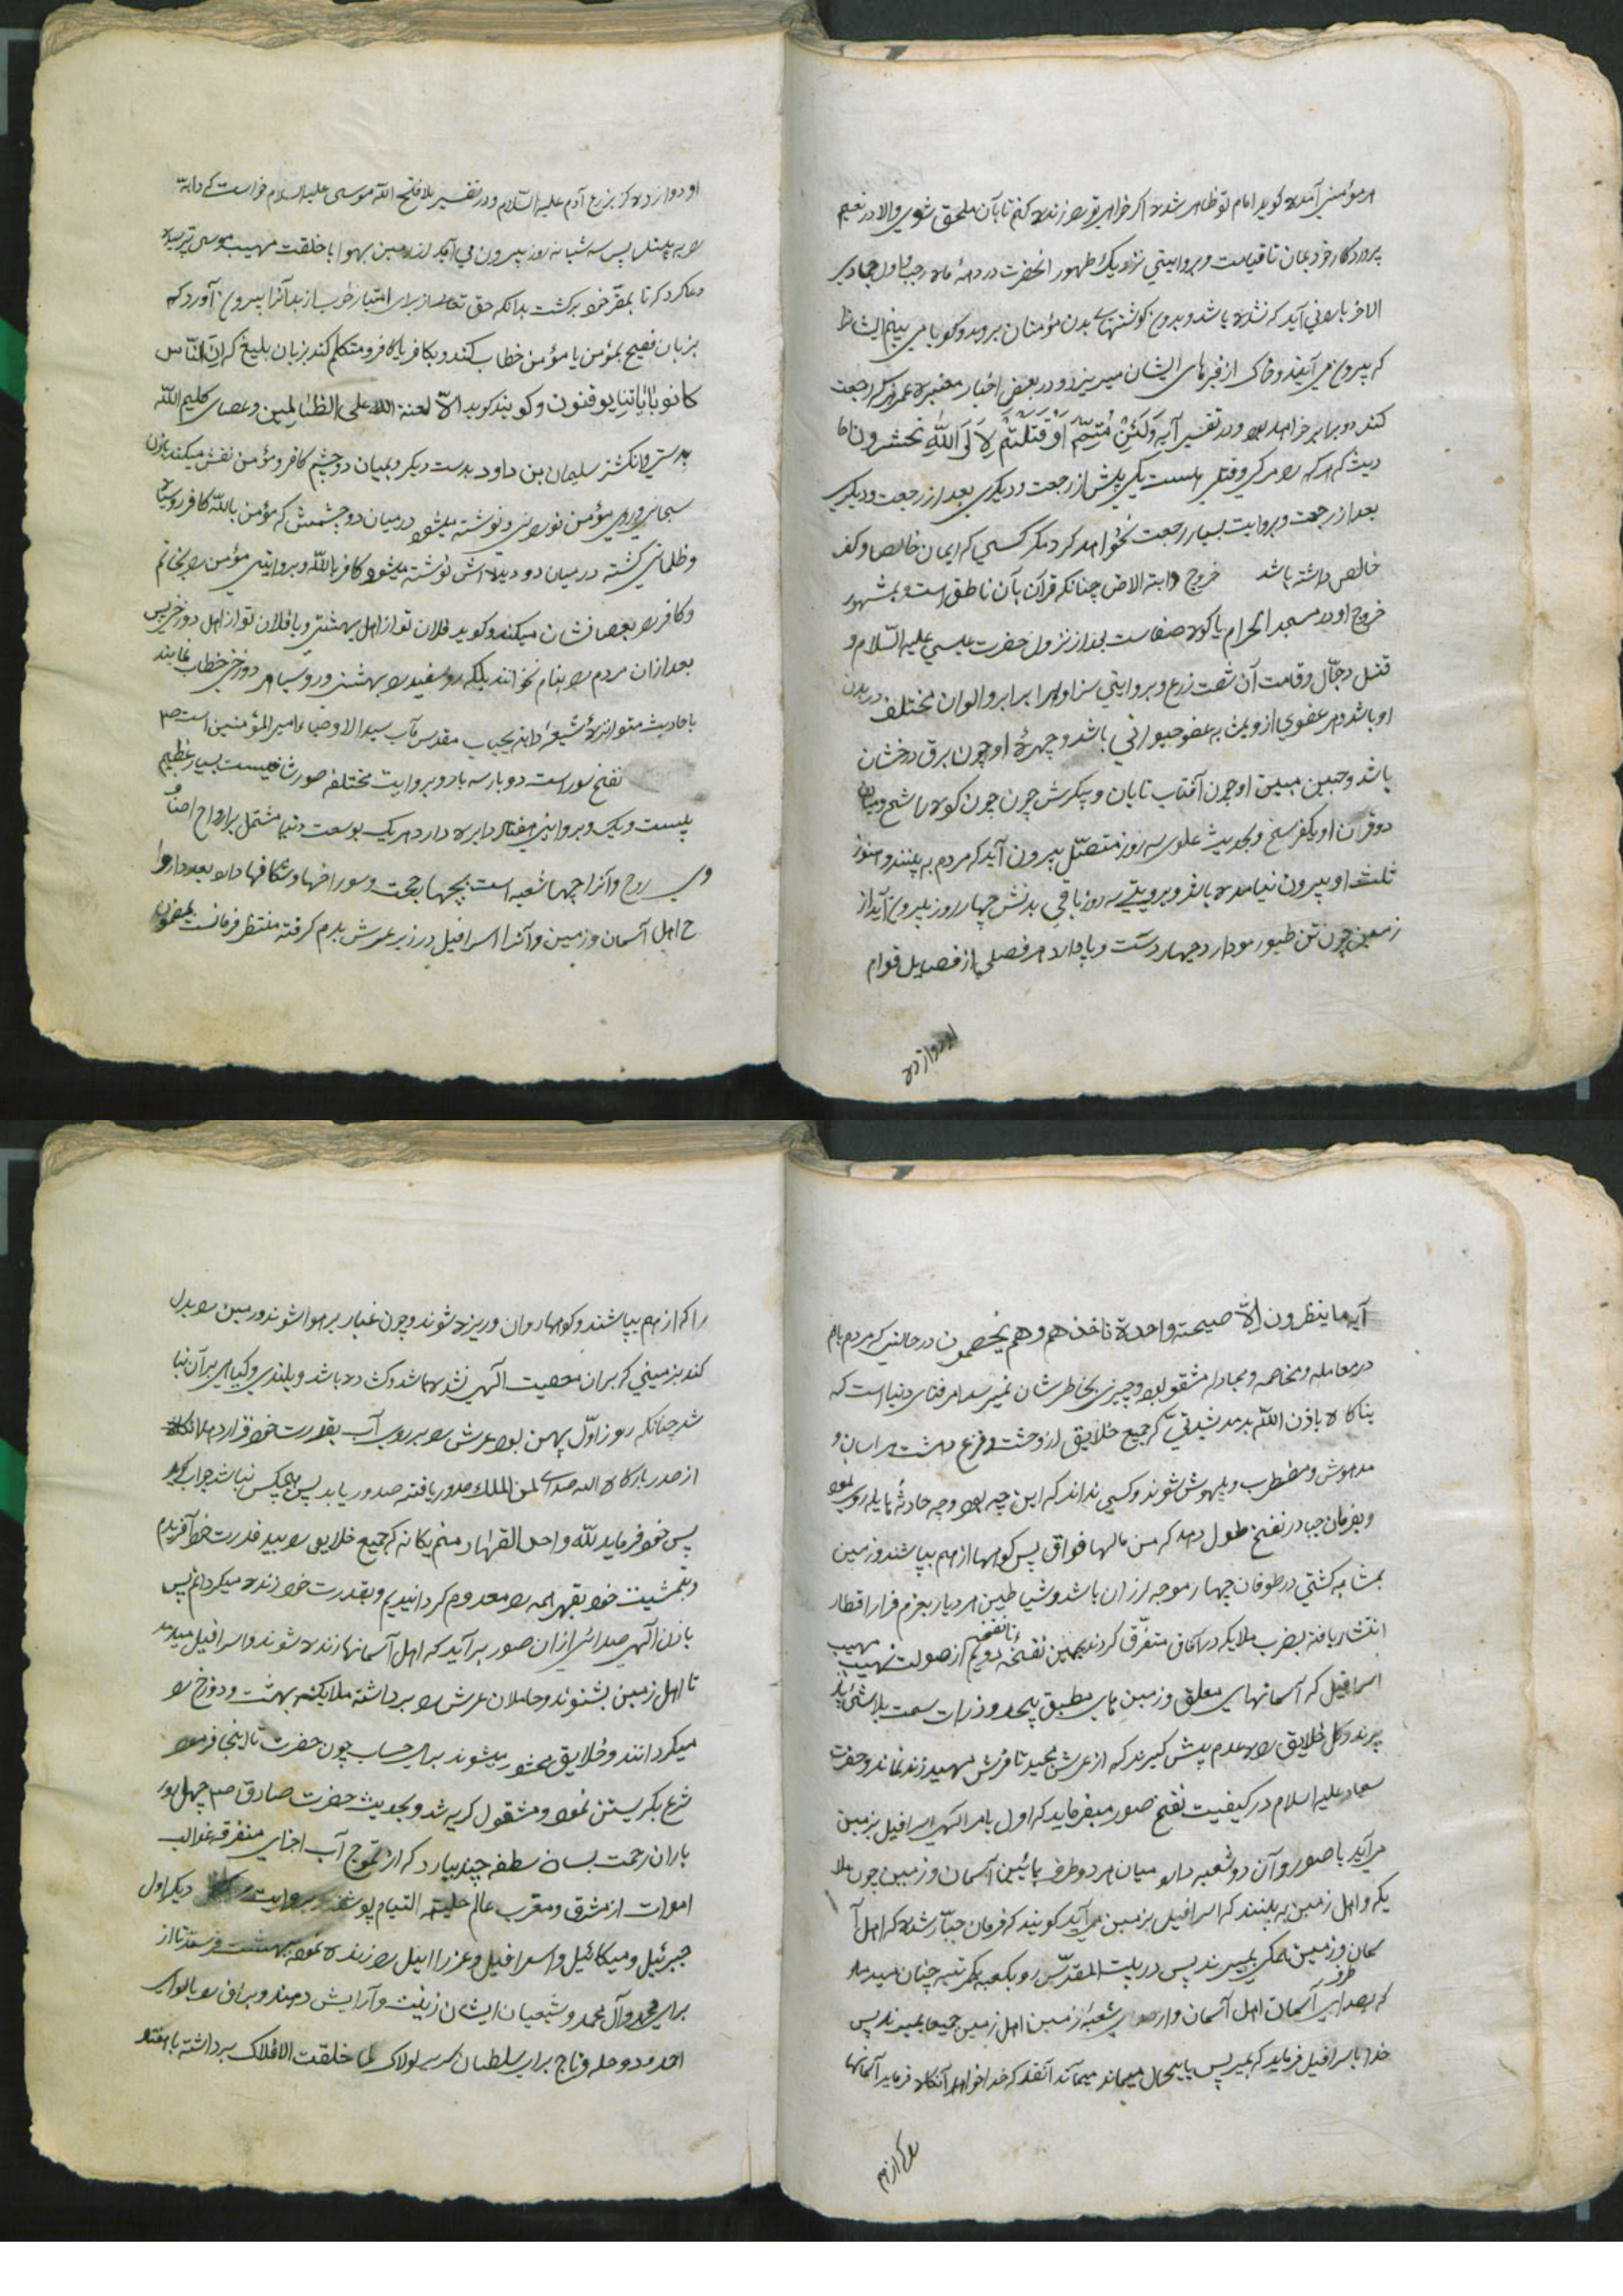 هر مؤمنی آمده کوید امام تو ظاهر شده اکر خواهی تو را زنده کنم تا بآن ملحق شوی والا در نعیم
پروردکار خود بمان تا قیامت و بروایتی نزدیک ظهور انحضرت در دهه ماه رجب و اول جمادی
الاخر بارونی آید که نشده باشد و بدان کوشتهای بدن مؤمنان بروید و کویا می بینم ایشانرا
که بیرون می آیند و خاک از قبرهای ایشان میریزد و در بعض اخبار معتبره عمر رجعت
کنند دو برابر خواهد بود و در تفسیر آیه ولئن متم او قتلتم لالی الله تحشرون احا
دیث که هر که را مرکی و قتلی هست یکی پیش از رجعت و دیکری بعد از رجعت و دیکری
بعد از رجعت و بروایت بسیار رجعت نخواهد کرد مکر کسی که ایمان خالص و کفر
خالص داشته باشد خروج دابته الارض چنانکه قرآن بآن ناطق است و بمشهور
خروج او در مسجد الحرام یا کوه صفا است بعد از نزول حضرت عیسی علیه السلام و
قتل دجّال و قامت آن شصت زرع و بروایتی سزاوار ابرابر و الوان مختلف در بدن
او باشد و هر عضوی از وی شبه عضو حیوانی باشد و چهرهٔ او چون برق درخشان
باشد و جبین مبین او چون آفتاب تابان و پیکرش چون کوه شامخ و میان
دو قرن او یکفرسخ و بحدیث علوی سه روز متصل بیرون آید که مردم به بینند و هنوز
ثلث او بیرون نیامده باشد و بروایتی سه روز باقی بدنش چهار روز بیرون آید از
زمین چون تن طیور مو دارد چهار دست و پا دارد هر فصلی از فصایل قوام
او دوازده
او دوازده کز بزرع آدم علیه السّلام و در تفسیر بلا فتح الله موسی علیه السلام خواست که دابة
را به بیند پس سه شبانه روز بیرون می آید از زمین بهوا با خلقت مهیب موسی ترسیده
دعا کرد که تا بمقرّ خود برکشت بدانکه حق تعالی از برای امتیاز خوب از بد آنرا بیرون آورد که
بزبان فصیح بمؤمن یا مؤمن خطاب کند و بکافر یا کافر و متکلم کند بزبان بلیغ که انّ النّاس
کانوا بایاتنا یوقنون و کویند کوید الا لعنة الله علی الظالمین و عصای کلیم الله
بدستی و انکشتر سلیمان بن داود بدست دیکر و بمیان دو چشم کافر و مؤمن نقش میکند باذن
سبحانی و روی مؤمن نورانی و نوشته میشود در میان دو چشمش که مؤمن بالله کافر رو سیاه
و ظلمانی کشته در میان دو دیده اش نوشته میشود کافر بالله و بروایتی مؤمن را بخاتم
و کافر را بعصا نشان میکند و کوید فلان تو از اهل بهشتی و یا فلان تو از اهل دوزخی پس
بعد از ان مردم را بنام نخوانند بلکه رو سفید را بهشتی و رو سیاه را دوزخی خطاب نمایند
باحادیث متواتره شیعه دابه بجناب مقدس مآب سید الاوصیاء امیر المؤمنین است
نفخ صور است دو بار سه بار و بروایت مختلفه صور شاخیست بسیار عظیم
بیست و یک و بروایتی هفتاد دایره دارد هر یک بوسعت دنیا مشتمل بر ارواح اصناف
وی روح و آنرا چهار شعبه است بچهار جهت و سوراخها و شکافها دارد بعدد اروا
ح اهل آسمان و زمین و آنرا اسرافیل در زیر عرش بدم کرفته منتظر فرمانست بمضمون
آیه ما ینظرون الّا صیحته واحدة تاخذهم و هم یخصمون در حالتی که مردم باهم
در معامله و مخاصمه و مجادله مشغول بود و چیزی بخاطرشان نمیرسد امر فنای دنیا است که
بناکاه باذن الله بدمد بشدتی که جمیع خلایق از وحشت و فزع دهشت هراسان و
مدهوش و مضطرب و بیهوش شوند و کسی نداند که این چه بود و چه حادثهٔ هایله روی نمود
و بفرمان جبار در نفخ طول دهد که من مالها فواق پس کوهها از هم بپاشند و زمین
بمشابه کشتی در طوفان چهار موجه لرزان باشد و شیاطین هر دیار بعزم فرار اقطار
انتشار یافته بضرب ملایکه در آفاق متفرّق کردند بهمین نفخه تا نفخه دویم از صولت نهیب مهیب
اسرافیل که آسمانهای معلق و زمین های مطبق پیچد و ذرات سمت بلاشی
پرند و کل خلایق راه عدم پیش کیرند که از عرش مجید تا فرش مهمید زنده نماند و حضرت
سجاد علیه السلام در کیفیت نفخ صور میفرماید که اول بامر الهی اسرافیل بزمین
می آید با صور و آن دو شعبه دارد میان هر دو طرف مابین آسمان و زمین چون ملا
یکه و اهل زمین به بینند که اسرافیل بزمین می آید کویند که فرمان جبّار شده که اهل آ
سمان و زمین همکی بمیرند پس در بیت المقدّس رو بکعبه یکمرتبه چنان میدمد
که بصدای طرف آسمان اهل آسمان و از صدای شعبهٔ زمین اهل زمین جمیعا بمیرند پس
خدا باسرافیل فرماید که بمیر پس باینحال میماند آنقدر که خدا خواهد آنکاه فرماید آسمانها
را که از هم
را که از هم بپاشند و کوهها روان و ریزه شوند و چون غبار بر هوا شوند و زمین را بدل
کند بزمینی که بر ان معصیت الهی نشده باشد و کشاده باشد و بلندی و کیاهی بر آن نبا
شد چنانکه روز اوّل پهن بود عرش را بر روی آب بقدرت خود قرار دهد آنکاه
از صدر بارکاه الله صدای لمن الملک صدور یافته صدور یابد پس هیچکس نباشد جواب کوید
پس خود فرماید للّه واحد القهّار منم یکانه که جمیع خلایق را بید قدرت خود آفریدم
و بمشیت خود بقهر همه را معدوم کردانیدم و بقدرت خود زنده میکردانم پس
باذن الهی صدائی از ان صور برآید که اهل آسمانها زنده شوند و اسرافیل میدمد
تا اهل زمین بشنوند و حاملان عرش را برداشته ملایکه بهشت و دوزخ را
میکردانند و خلایق محشور میشوند برای حساب چون حضرت تا اینجا فرمود
شرع بکریستن نمود و مشغول کریه شد و بحدیث حضرت صادق چهل روز
باران رحمت بسان نطفه چند ببارد که از تموج آب اجزای متفرقه غوالب
اموات از مشرق و مغرب عالم حلیه التیام پوشند بروایت دیکر اول
جبرئیل و میکائیل و اسرافیل و عزرائیل را زنده نمود بهشت فرستد تا از
برای محمد و آل محمد و شیعیان ایشان زینت و آرایش دهند و براق را با لوای
احمد و دو حله و تاج برای سلطان سریر لولاک لما خلقت الافلاک برداشته با هفتاد